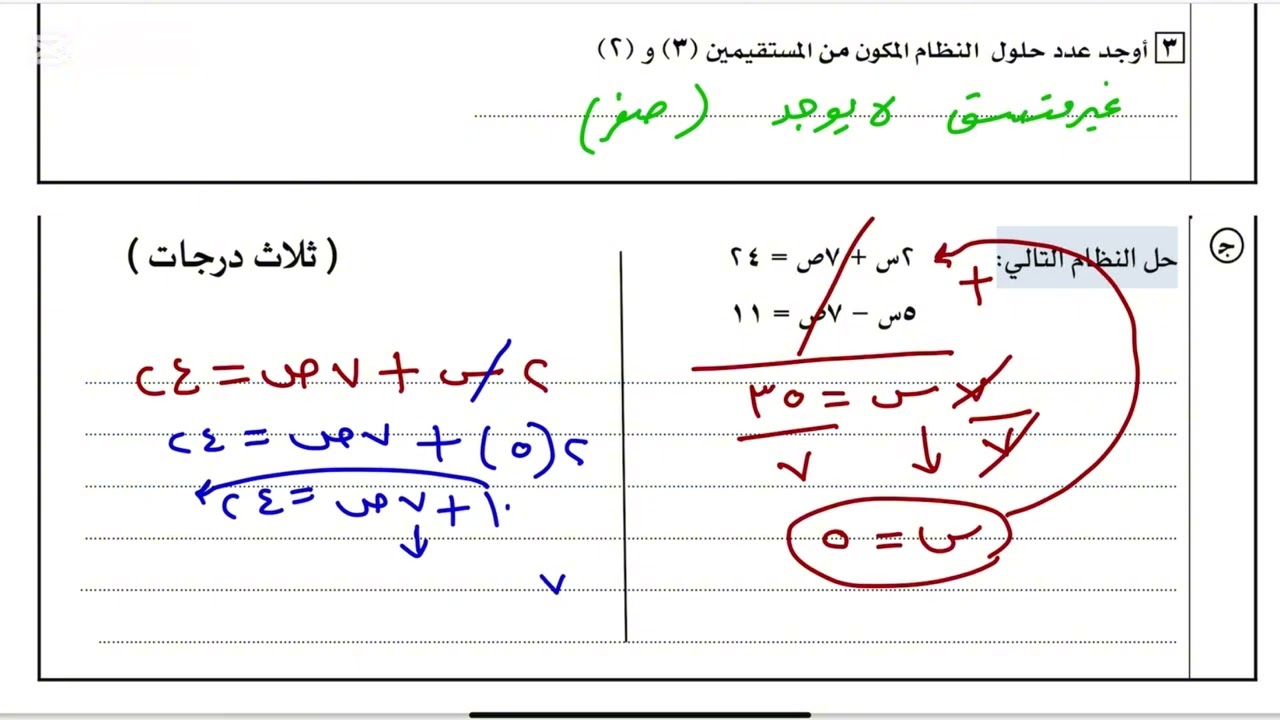 ٣ أوجد عدد حلول النظام المكون من المستقيمين (٣) و (٢)
غير متسق لا يوجد (صفر)
ج حل النظام التالي: ٢س + ٧ص = ٢٤
٥س − ٧ص = ١١
+
٧س = ٣٥
٧ ٧
س = ٥
( ثلاث درجات )
٢س + ٧ص = ٢٤
٢(٥) + ٧ص = ٢٤
١٠ + ٧ص = ٢٤
٧